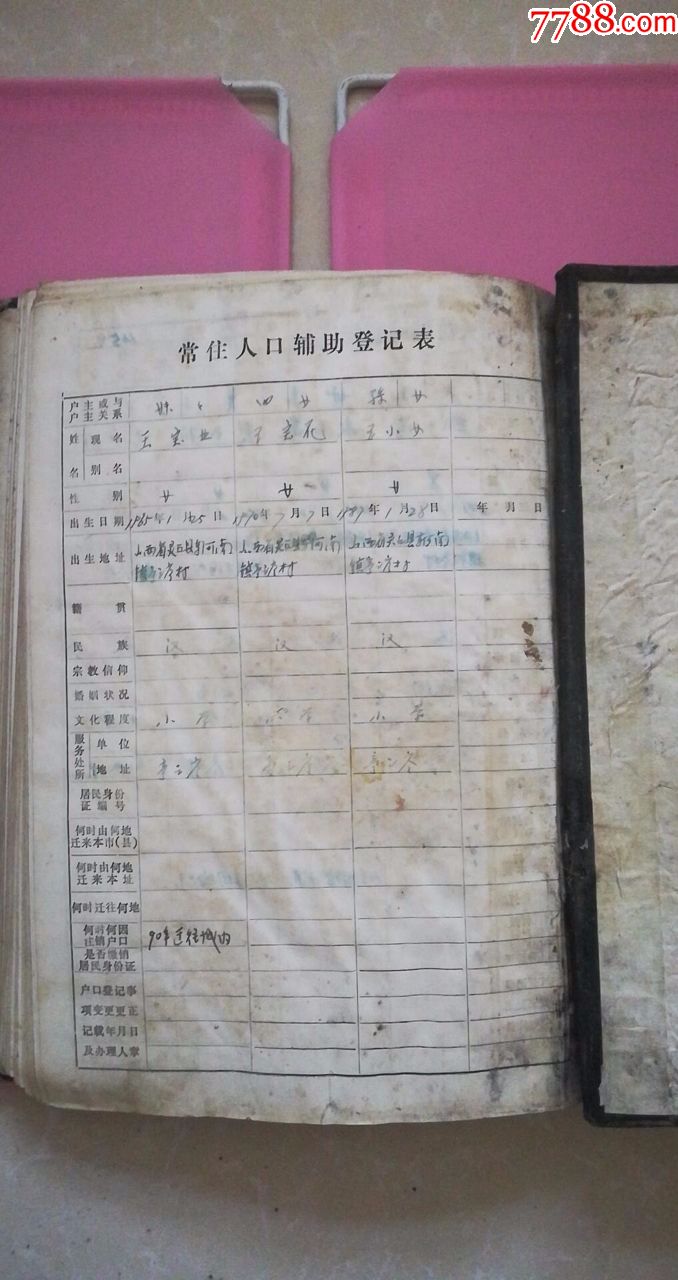 7788.com
常住人口辅助登记表
户主或与户主关系 四女 孙女
姓 现名 王 王小女
名 别名
性别 女 女 女
出生日期 1965年1月25日 1970年7月7日 1987年1月23日 年月日
出生地址 山西省灵丘县 河南 山西省灵丘县 河南 山西省灵丘县 河南
镇 村 镇 村 镇 村
籍贯
民族 汉 汉 汉
宗教信仰
婚姻状况
文化程度 小学 小学 小学
服务处所 单位
地址
居民身份
证编号
何时由何地
迁来本市(县)
何时由何地
迁来本址
何时迁往何地
何时何因
注销户口 90年迁往城内
是否缴销
居民身份证
户口登记事
项变更更正
记载年月日
及办理人章